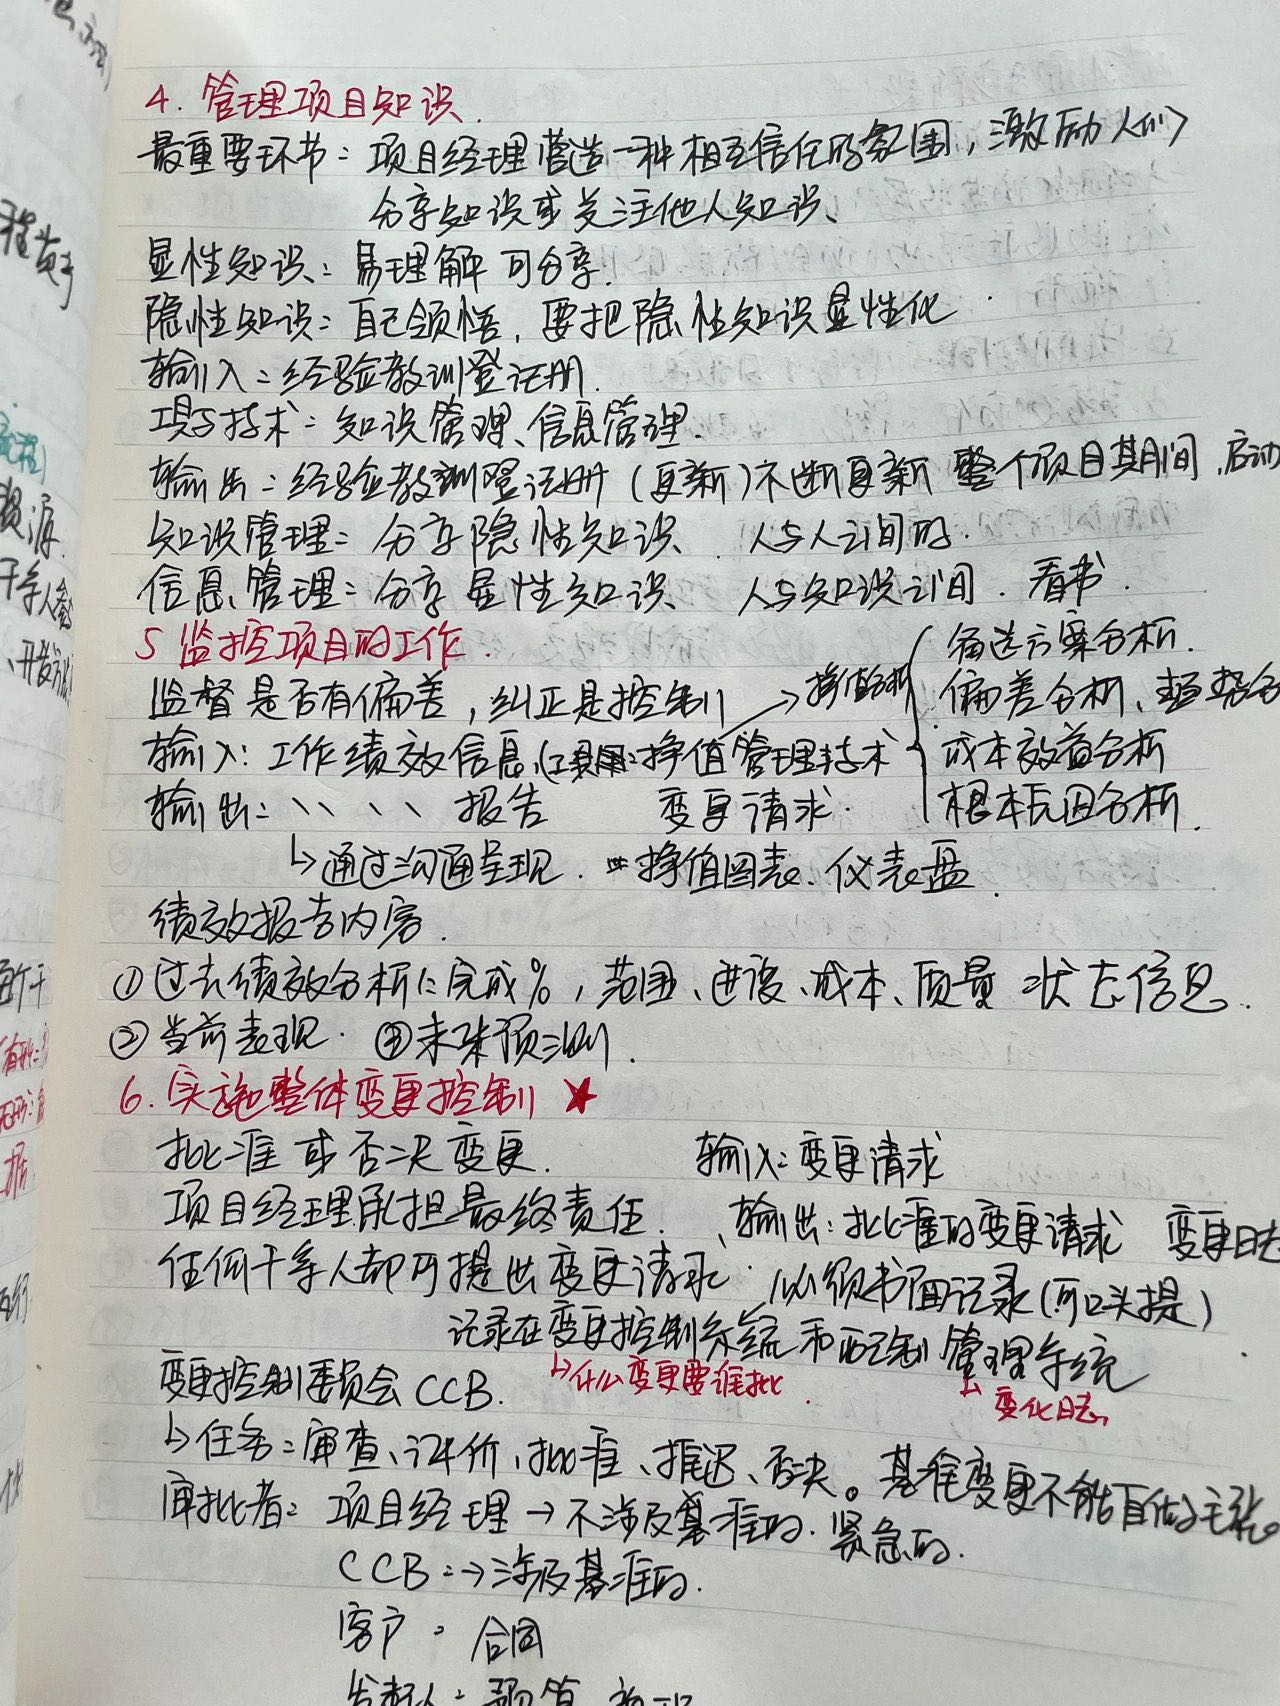 4. 管理项目知识.
最重要环节: 项目经理营造一种相互信任的氛围, 激励人们
分享知识或关注他人知识.
显性知识: 易理解 可分享.
隐性知识: 自己领悟, 要把隐性知识显性化
输入: 经验教训登记册.
工具与技术: 知识管理、信息管理.
输出: 经验教训登记册 (更新) 不断更新 整个项目期间. 启动
知识管理: 分享隐性知识、 人与人之间的.
信息管理: 分享显性知识、 人与知识之间. 看书.
5 监控项目的工作.
监督是否有偏差, 纠正是控制 → 挣值分析
备选方案分析.
偏差分析、趋势分
输入: 工作绩效信息、(工具: 挣值管理技术
成本效益分析
输出: 、、 、、 报告 变更请求.
根本原因分析.
↳通过沟通呈现. 挣值图表、仪表盘.
绩效报告内容.
①过去绩效分析: 完成%, 范围、进度、成本、质量 状态信息.
②当前表现. ③未来预测.
6. 实施整体变更控制 ★
批准或否决变更. 输入: 变更请求
项目经理承担最终责任. 输出: 批准的变更请求 变更日志
任何干系人都可提出变更请求. 必须书面记录(可口头提)
记录在变更控制系统和配制管理系统
变更控制委员会 CCB. ↳什么变更要谁批. ↳变化日志
↳任务: 审查、评价、批准、推迟、否决。基准变更不能自作主张。
审批者: 项目经理 → 不涉及基准的. 紧急的.
CCB: → 涉及基准的.
客户: 合同
发起人: 预算